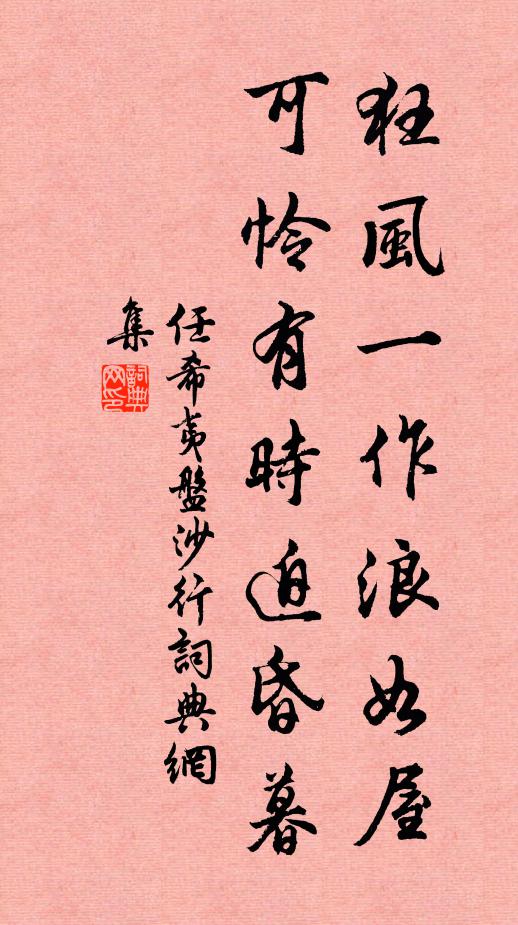 狂風一作浪如屋
可憐有時迫昏暮
任希夷盤沙行詞典網
集
詞典網印